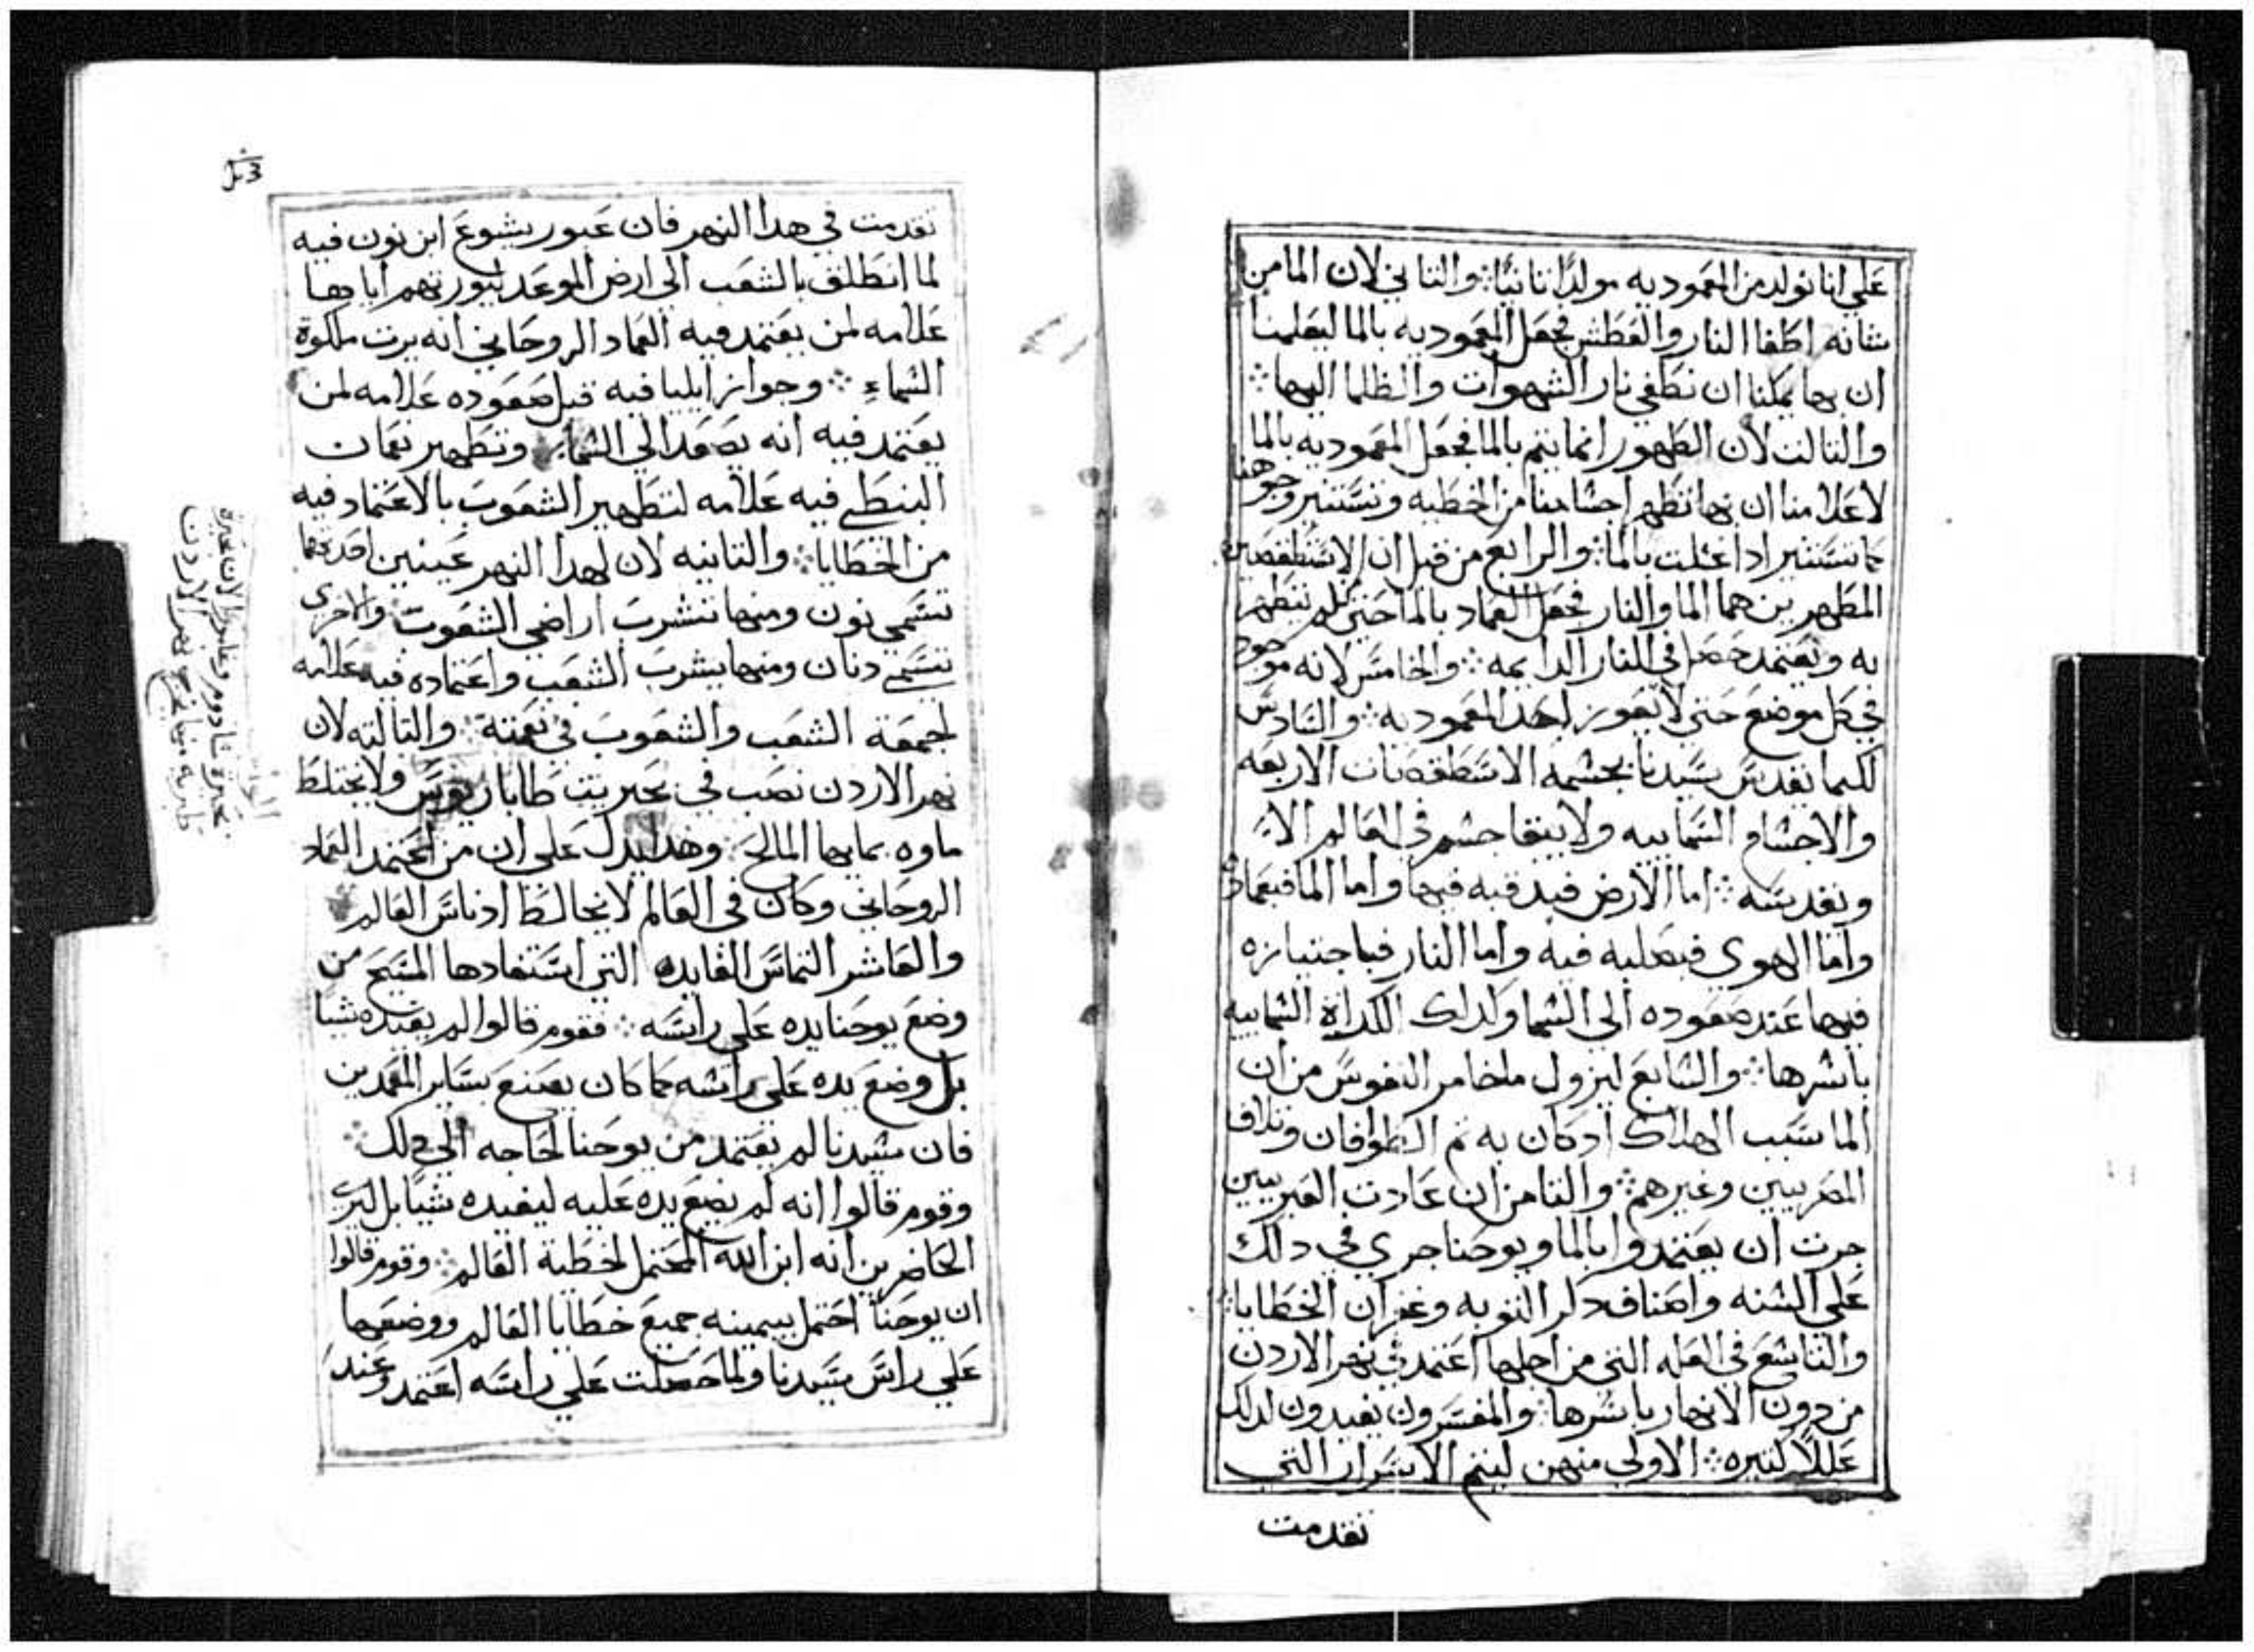 علي انا نولد من المعموديه مولدًا ثانيًا ⁘ والثاني لان الما من
شانه اطفا النار والعطش فجعل المعموديه بالما ليعلمنا
ان بها يمكنا ان نطفي نار الشهوات والظلما اليها ⁘
والثالث لان الطهور انما يتم بالما فجعل المعموديه بالما
لاعلامنا ان بها تطهر اجسامنا من الخطيه وتستنير وجوهنا
كما تستنير ادا غسلت بالما ⁘ والرابع من قبل ان الاسطقصين
المطهرين هما الما والنار فجعل العماد بالما حتى كلمن تطهر
به وتعتمد في النار الدايمه ⁘ والخامس لانه موجود
في كل موضع حتي لا تعوز احد المعموديه ⁘ والسادس
لكيما تقدس سيدنا بجسمه الاسطقصات الاربعه
والاجسام السماييه ولا يبقا جسم في العالم الا
وتقدسه ⁘ اما الارض فبدفنه فيها واما الما فبعماده
واما الهوي فبصلبه فيه واما النار فباجتيازه
فيها عند صعوده الي السما ولداك الكراه السماييه
باسرها ⁘ والسابع ليزول ما خامر النفوس من ان
الما سبب الهلاك ادكان به تم الطوافان وتلاف
المصريين وغيرهم ⁘ والثامن ان عادت العبريين
جرت ان يعتمدوا بالما ويوحنا جري في دلك
علي السنه واضاف دكر التوبه وغفران الخطايا ⁘
والتاسع في العله التي من اجلها اعتمد في نهر الاردن
من دون الانهار باسرها ⁘ والمفسرون يفيدون لدلك
عللاً كتيره ⁘ الاولي منهن ليتم الاسرار التي
تقدمت
تقدمت في هدا النهر فان عبور يشوع ابن نون فيه
لما انطلق بالشعب الي ارض الموعد ليورتهم اياها
علامه لمن يعتمد فيه العماد الروحاني انه يرت ملكوة
السماء ⁘ وجواز ايليا فيه قبل صعوده علامه لمن
يعتمد فيه انه يصعد الي السما ⁘ وتطهير نعمان
النبطي فيه علامه لتطهير الشعوب بالاعتماد فيه
من الخطايا ⁘ والتانيه لان لهدا النهر عينين احدتهما
تسمي نون ومنها تشرب اراضي الشعوب والاخرى
تسمي دنان ومنها يشرب الشعب واعتماده فيه علامه
لجمعه الشعب والشعوب في نعمته ⁘ والتالته لان
نهر الاردن نصب في بحيريت طاباريوس ولا يختلط
ماوه بمايها المالح ⁘ وهدا يدل علي ان من اعتمد العماد
الروحاني وكان في العالم لا يخالط ادناس العالم
والعاشر التماس الفايده التي استفادها المسيح من
وضع يوحنا يده علي راسه ⁘ فقوم قالوا لم يفيده شيا
بل وضع يده علي راسه كما كان يصنع بساير المعمدين
فان سيدنا لم يعتمد من يوحنا لحاجه الي دلك ⁘
وقوم قالوا انه لم يضع يده عليه ليفيده شيًا بل ليري
الحاضرين انه ابن الله المحتمل لخطية العالم ⁘ وقوم قالوا
ان يوحنا احتمل بيمينه جميع خطايا العالم ووضعها
علي راس سيدنا ولما حصلت علي راسه اعتمد وعند